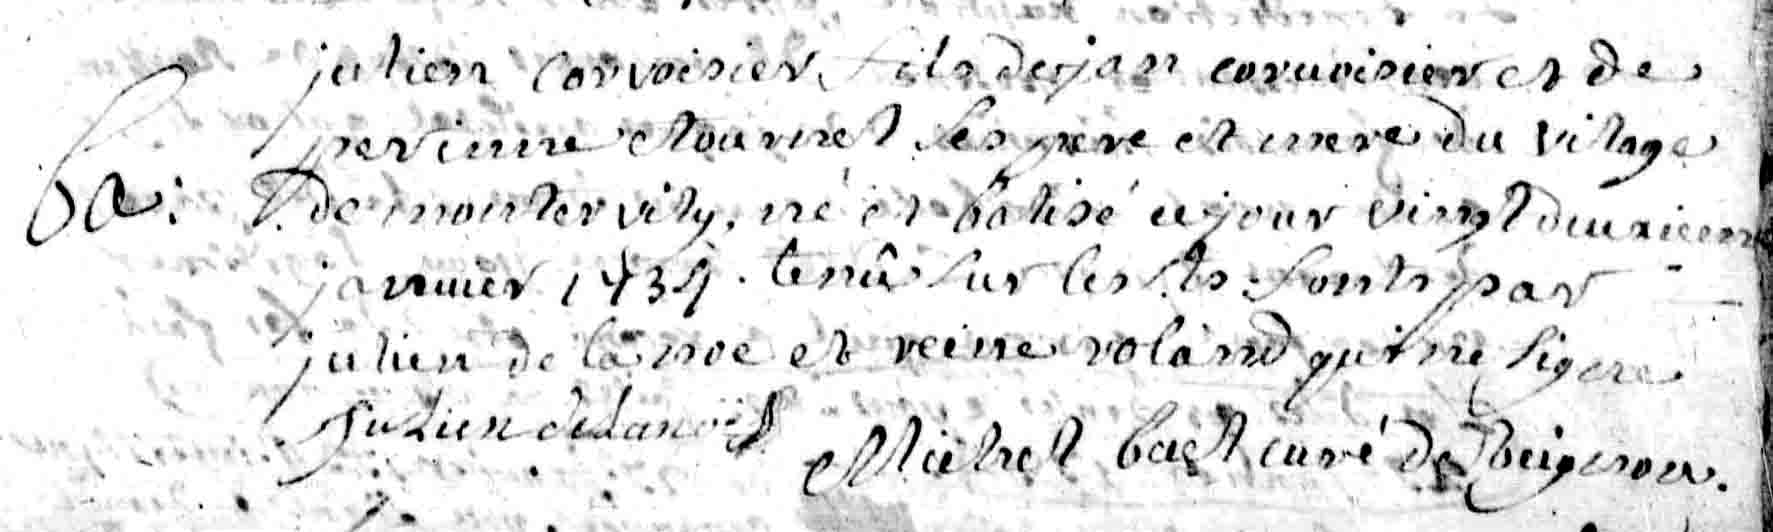 julien corvoisier fils de jan coruoisier et de
perinne etournet ses pere et mere du vilage
Ba: de montervily, né et batisé ce jour vingt deuxieme
janvier 1734. tenû sur les sts. fonts par
julien de la noe et reine roland qui ne signe
Julien delanoë
Michel curé de